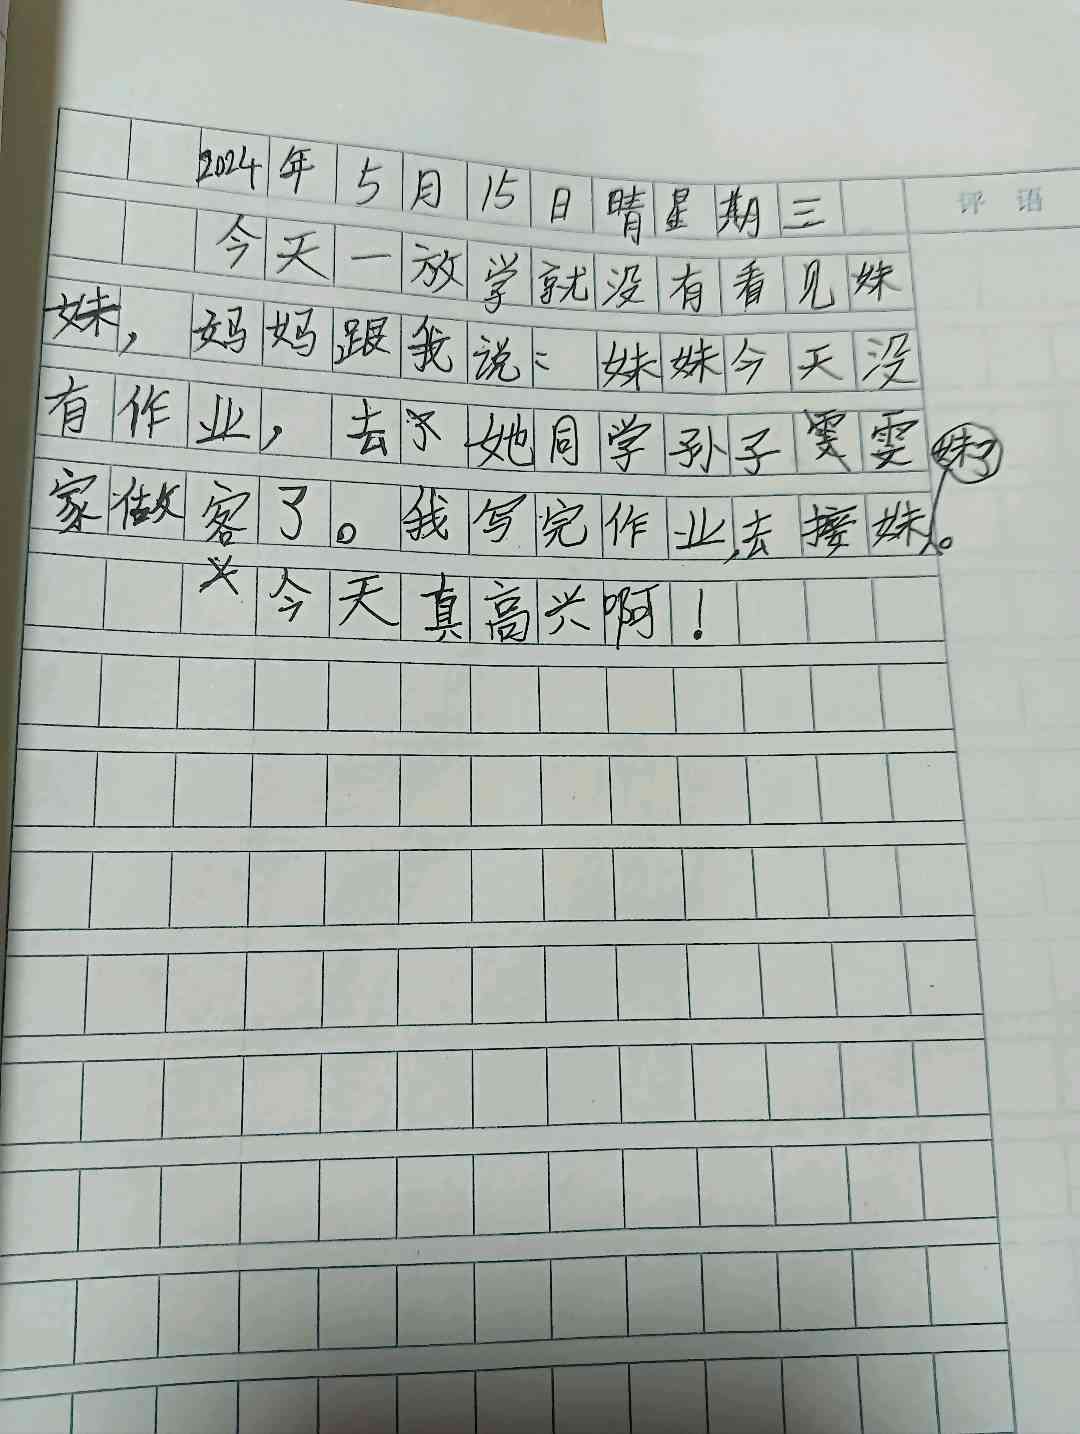 2024年5月15日晴星期三
评语
今天一放学就没有看见妹
妹，妈妈跟我说：妹妹今天没
有作业，去了她同学孙子雯雯
家做客了。我写完作业,去接妹妹了。
今天真高兴啊！